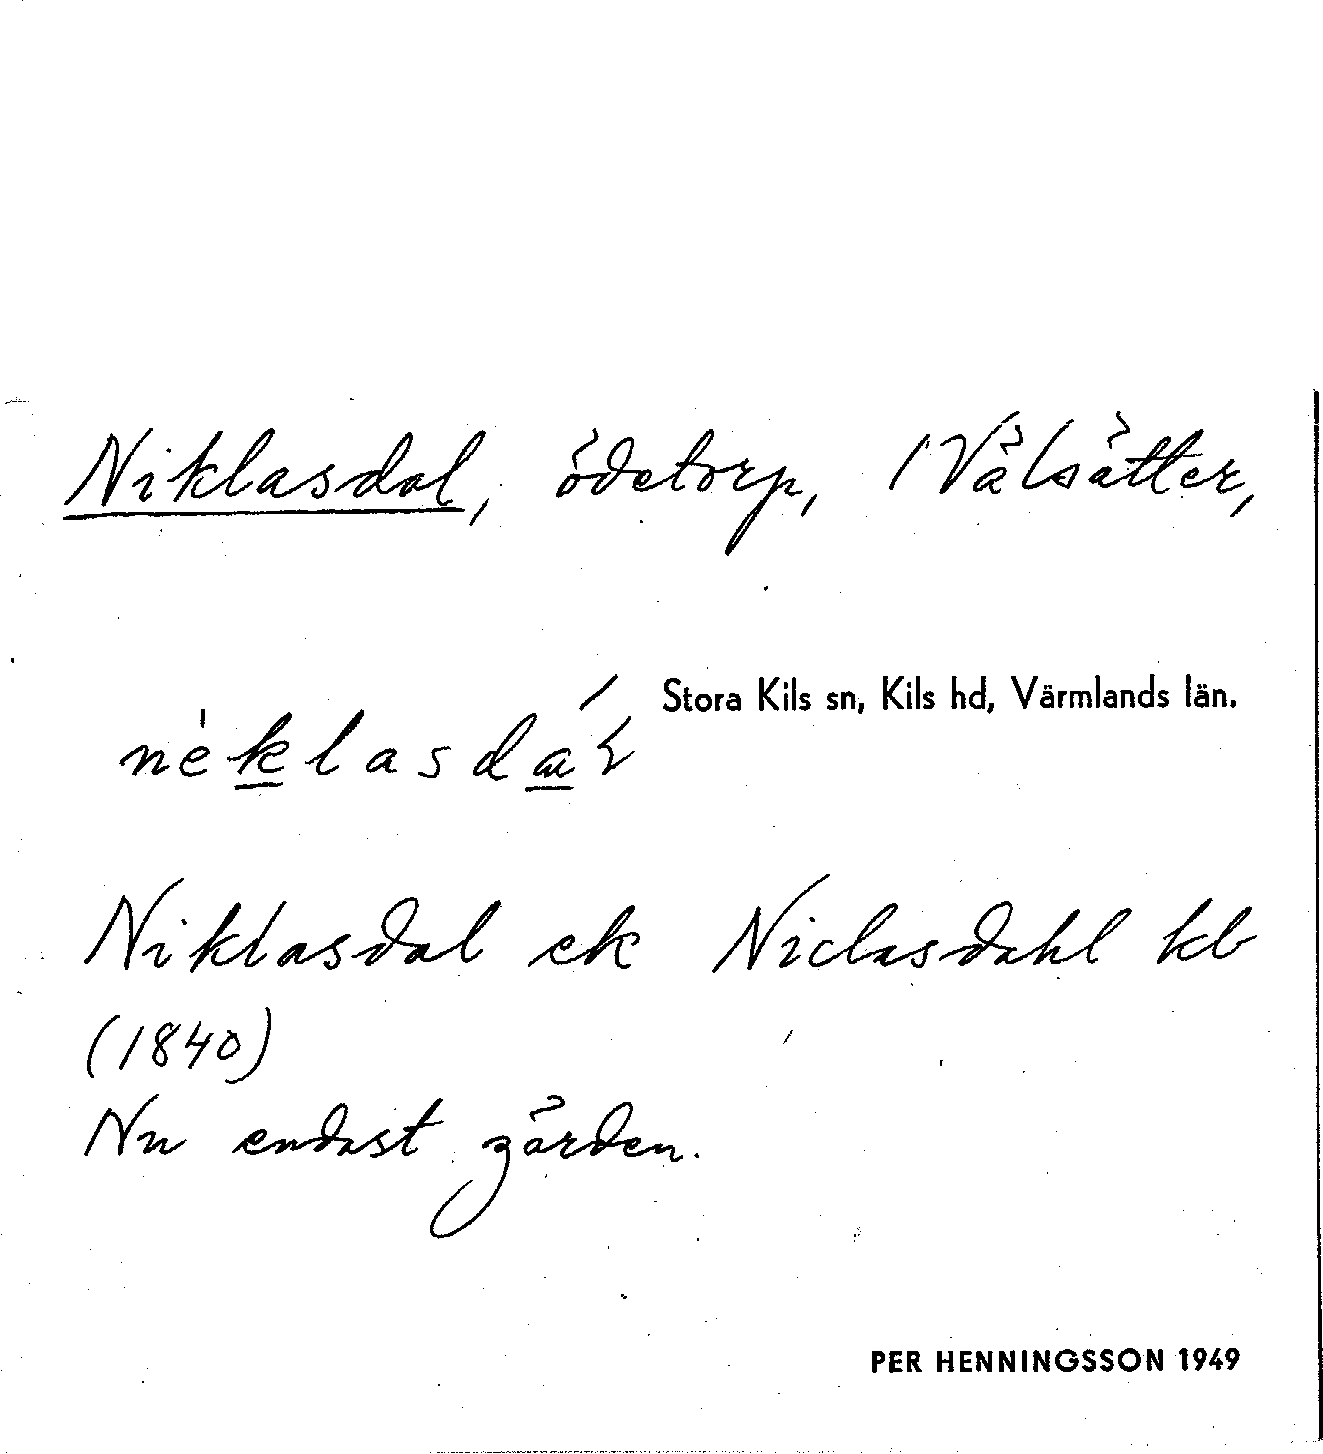 Niklasdal, ödetorp, 1 Vålsätter,
Stora Kils sn, Kils hd, Värmlands län.
Niklasdal ek Niclasdahl kb
(1840)
Nu endast gården.
PER HENNINGSSON 1949